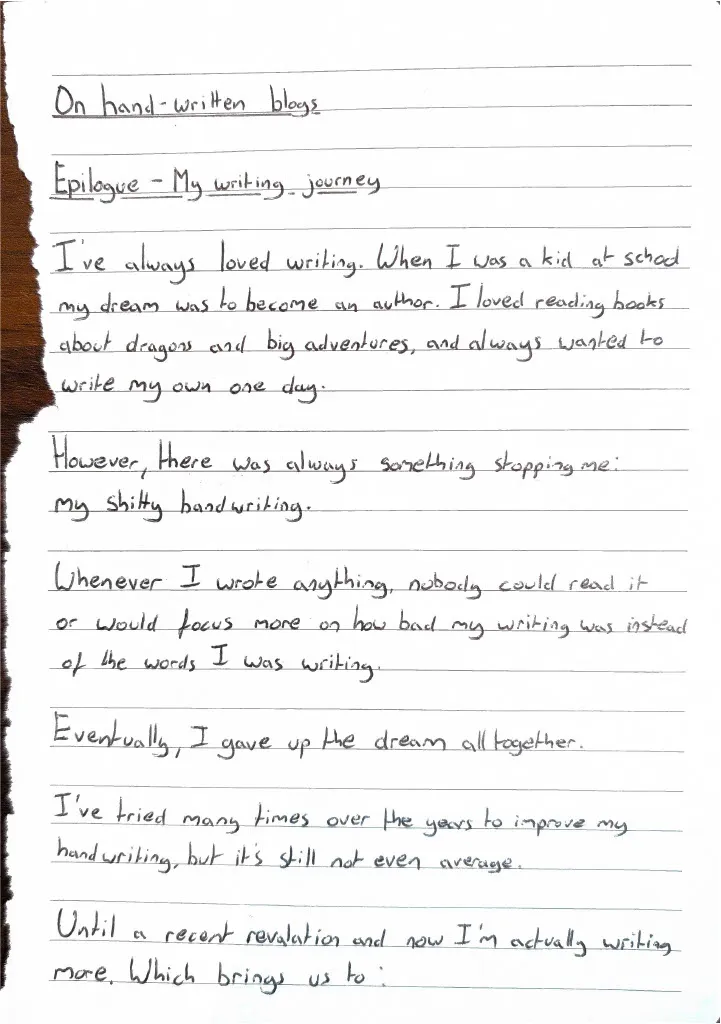 On hand-written blogs
Epilogue - My writing journey
I've always loved writing. When I was a kid at school
my dream was to become an author. I loved reading books
about dragons and big adventures, and always wanted to
write my own one day.
However, there was always something stopping me:
my shitty handwriting.
Whenever I wrote anything, nobody could read it
or would focus more on how bad my writing was instead
of the words I was writing.
Eventually, I gave up the dream all together.
I've tried many times over the years to improve my
handwriting, but it's still not even average.
Until a recent revalation and now I'm actually writing
more. Which brings us to: